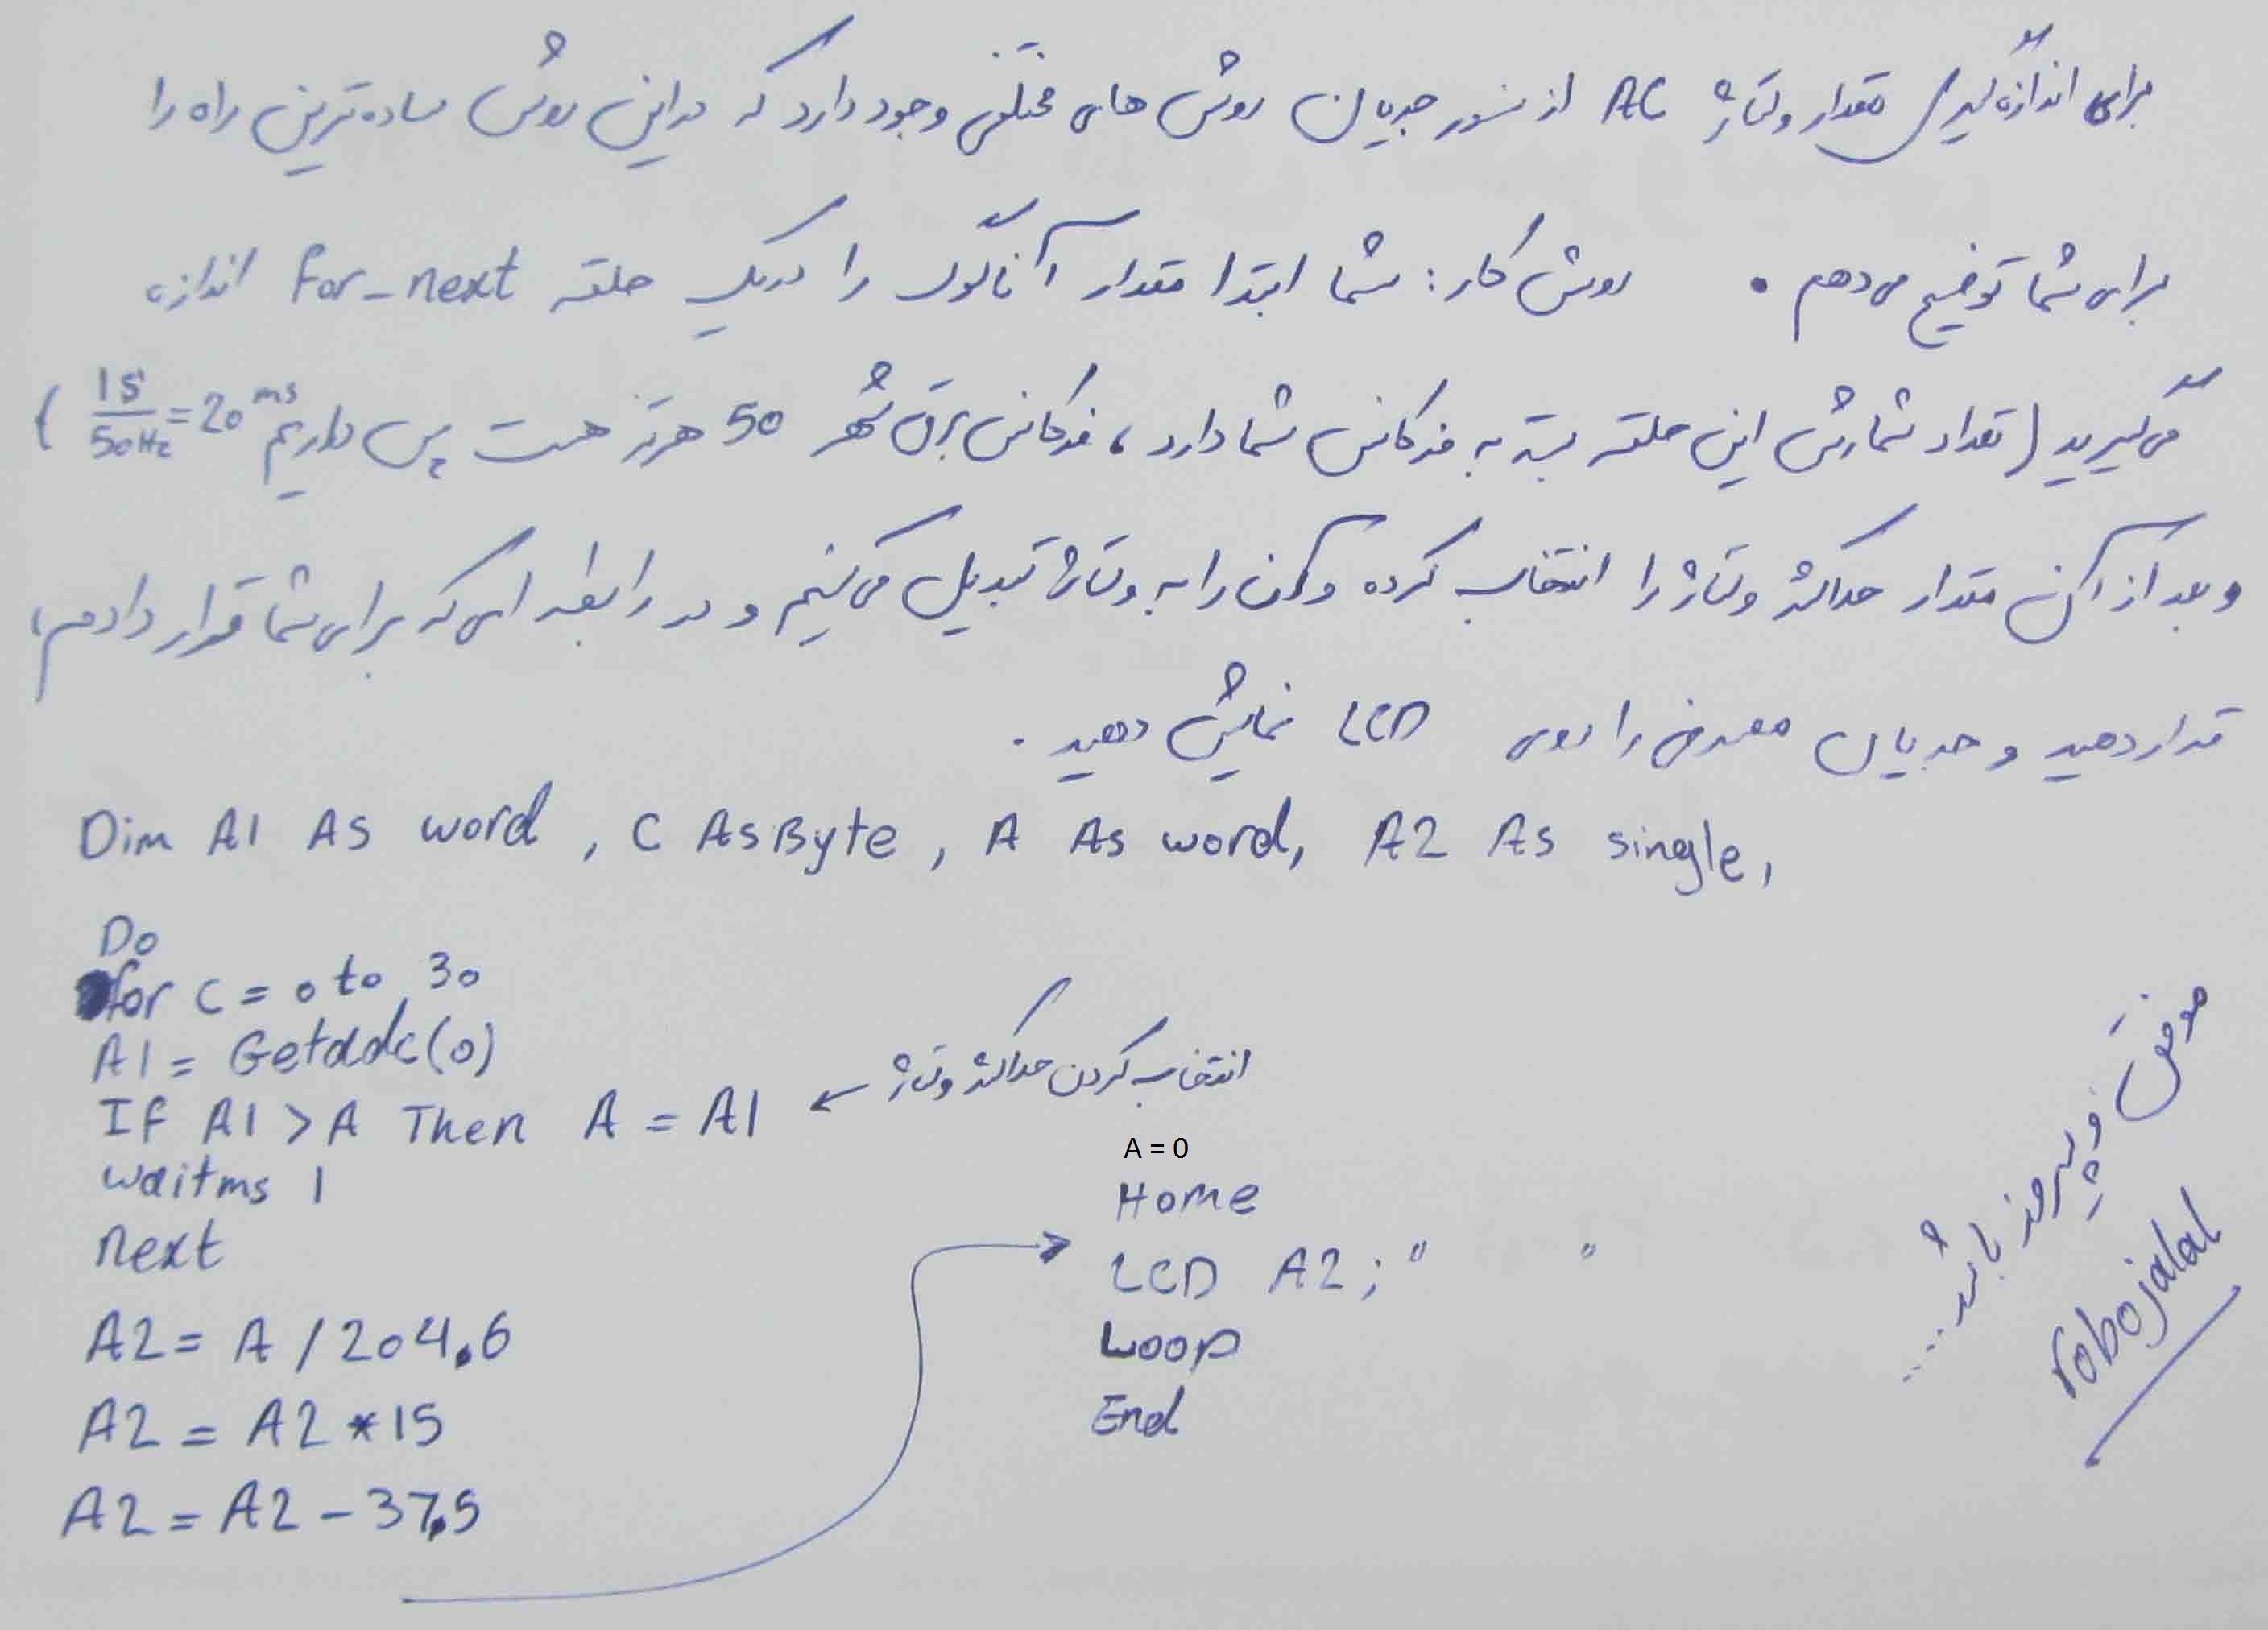 برای اندازه گیری مقدار ولتاژ AC از سنسور جریان روش های مختلفی وجود دارد که در این روش ساده ترین راه را
برای شما توضیح می دهم . روش کار : شما ابتدا مقدار آنالوگ را در یک حلقه For_next اندازه
می گیرید ( تعداد شمارش این حلقه بسته به فرکانس شما دارد ، فرکانس برق شهر 50 هرتز هست پس داریم 1s/50Hz = 20ms )
و بعد از آن مقدار حداکثر ولتاژ را انتخاب کرده و آن را به ولتاژ تبدیل می کنیم و در رابطه ای که برای شما قرار دادم ،
قرار دهید و جریان مصرفی را روی LCD نمایش دهید .
Dim A1 As word , C As Byte , A As word, A2 As single,
Do
for c = 0 to 30
A1 = Getadc(0)
If A1 > A Then A = A1 ← انتخاب کردن حداکثر ولتاژ
waitms 1
next
A2 = A / 204.6
A2 = A2 * 15
A2 = A2 - 37.5
A = 0
Home
LCD A2 ; " "
Loop
End
موفق و پیروز باشید....
robojalal